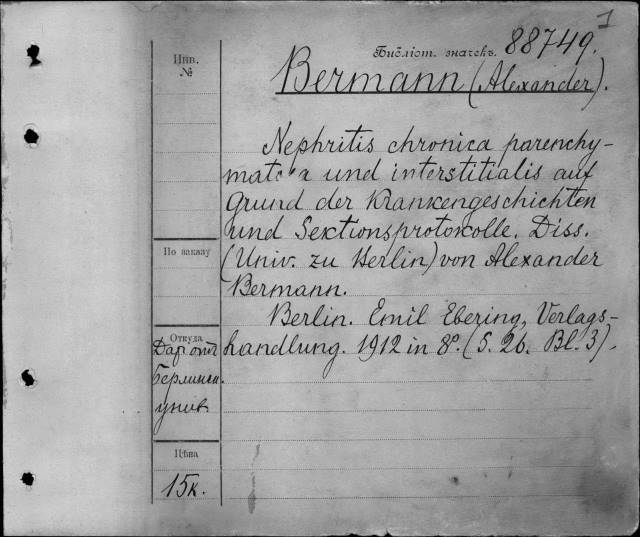 1
Библіот. значекъ. 88749.
Инв.
№
Bermann (Alexander).
Nephritis chronica parenchy-
matosa und interstitialis auf
Grund der Krankengeschichten
und Sektionsprotokolle. Diss.
По заказу
(Univ. zu Berlin) von Alexander
Bermann.
Berlin. Emil Ebering, Verlags-
Откуда
handlung. 1912 in 8°. (S. 26. Bl. 3).
Даръ отъ
Берлинск.
унив
Цѣна
15к.